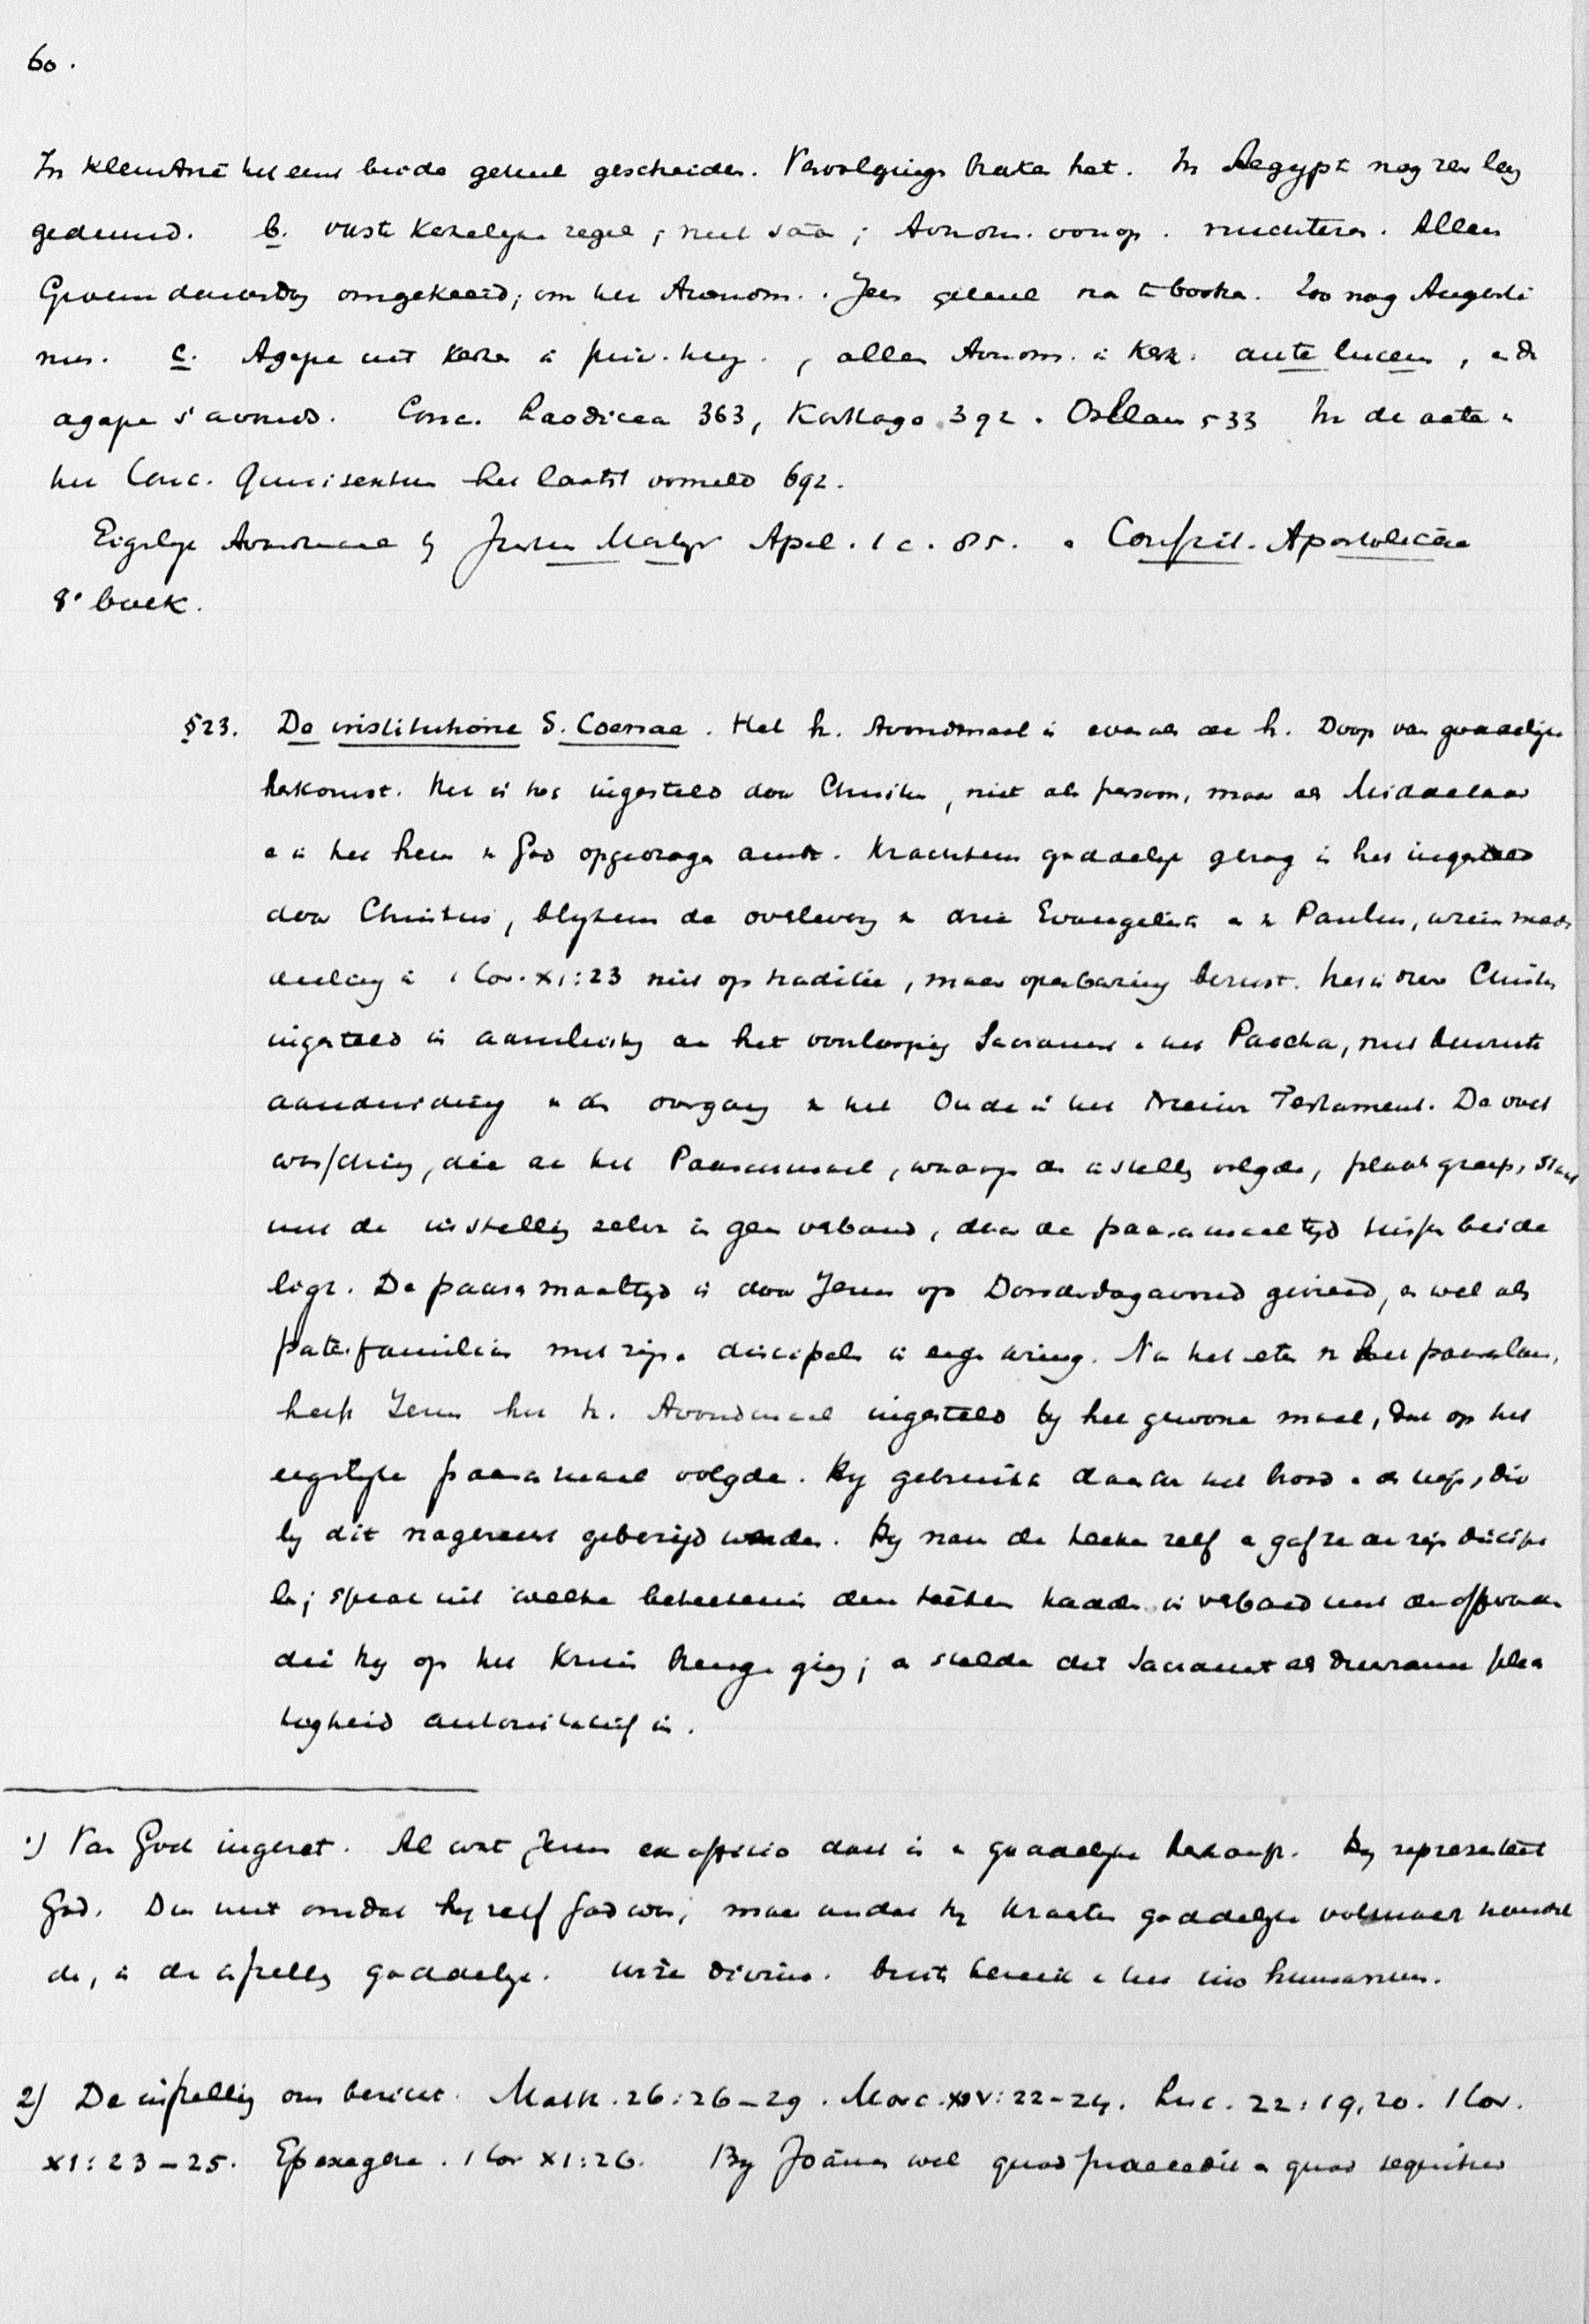 60.
In KleinAzië het eerst beide geheel gescheiden. Vervolgings brake het. In Aegypte nog zeer lang
gedeurd. b. vaste Kerkelijke regel; niet ; Avondm. voorop. nuchteren. Alleen
Groene donderdag omgekeerd; om het Avondm. . Jezus geheel na te bootsen. Zoo nog Augusti
nus. c. Agape uit Kerken in priv. huiz., alleen Avondm. in Kerk. ante lucem, en de
agape s'avonds. Conc. Laodicea 363, Karthago 392. Orlean 533 In de acta v
het Conc. Quinisextum het laatst vermeld 692.
Eigelijke Avondmaal bij Justin Martyr Apol. 1 c. 85. e Constit. Apostolicae
8e boek.
§23. De institutione S. Coenae. Het h. Avondmaal is evenals de h. Doop van goddelijke
herkomst. Het is ons ingesteld door Christus, niet als persoon, maar als Middelaar
e in het hem v God opgedragen ambt. Krachtens goddelijk gezag is het ingesteld
door Christus, blijkens de overlevering v drie Evangelisten e v Paulus, wiens mede
deeling in 1 Cor. XI:23 niet op traditie, maar openbaring berust. Het is door Christus
ingesteld in aansluiting aan het voorloopig Sacrament v het Pascha, met bewuste
aanduiding v den overgang v het Oude in het Nieuwe Testament. De voet
wassching, die aan het Paaschmaal, waarop de instelling volgde, plaats greep, staat
met de instelling zelve in geen verband, daar de paaschmaaltijd tusschen beide
ligt. De paaschmaaltijd is door Jezus op Donderdagavond gevierd, en wel als
paterfamilias met zijn discipelen in enge kring. Na het eten v het paaschlam,
heeft Jezus het h. Avondmaal ingesteld bij het gewone maal, dat op het
eigelijke paaschmaal volgde. Hij gebruikte daartoe het brood e de wijn, die
bij dit nagerecht gebezigd werden. Hij nam de teeken zelf e gaf ze aan zijn discipe
len; sprak uit welke beteekenis deze teeken hadden in verband met de offerande
die hij op het Kruis brenge ging; e stelde dit Sacrament als duurzame plech
tigheid autoritatief in.
1) Van God ingezet. Al wat Jezus ex officio doet is v goddelijke herkomst. Hij representeert
God. Dus niet omdat hij zelf God was, maar omdat hij krachten goddelijke volmacht handel
de, is de instelling goddelijk. iure divino. buiten bereik v het ius humanum.
2) De instelling ons bericht. Matth. 26:26–29. Marc. XIV:22–24. Luc. 22:19,20. 1 Cor.
XI:23–25. Epexegese. 1 Cor XI:26. Bij Joannes wel quod praecedit e quod sequitur